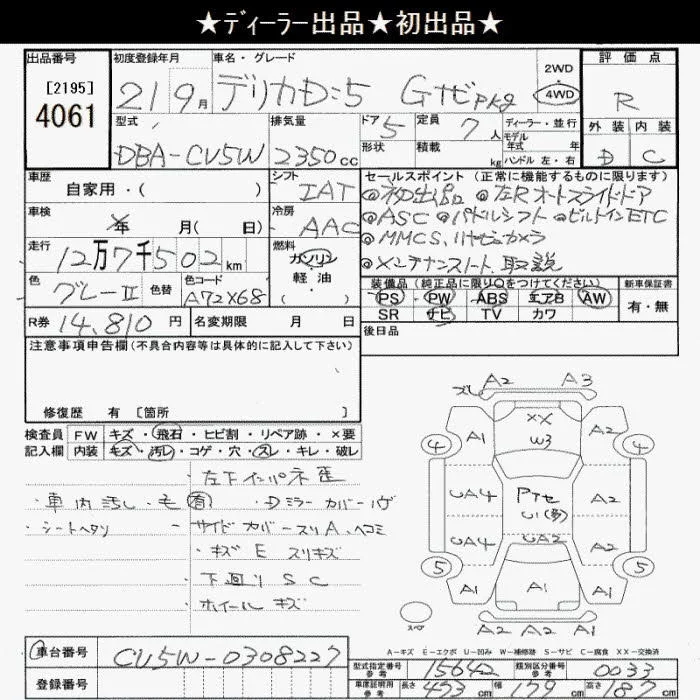 ★ディーラー出品★初出品★
出品番号
[2195]
4061
初度登録年月
21 9月
車名・グレード
デリカD:5 Gナビpkg
2WD
4WD
評価点
R
外装 内装
D C
型式
DBA-CV5W
排気量
2350cc
ドア 5
形状
定員 7人
積載 kg
ディーラー・並行
モデル年式 年
ハンドル 左・右
車歴
自家用・( )
シフト
IAT
セールスポイント (正常に機能するものに限ります)
◎初出品 ◎左Rオートスライドドア
◎ASC ◎パドルシフト ◎ビルトインETC
◎MMCS、リヤビューカメラ
◎メンテナンスノート、取説
車検
年 月( 日)
冷房
AAC
走行
12万7千502km
燃料
ガソリン
軽油
・( )
色
グレーII
色替
色コード
A72X68
装備品 (純正品に限り○をつけてください)
PS PW ABS エアB AW
SR ナビ TV カワ
新車保証書
有・無
R券 14,810円
名変期限 月 日
後日品
注意事項申告欄(不具合内容等は具体的に記入して下さい)
修復歴 有 [箇所 ]
検査員記入欄
FW キズ・飛石・ヒビ割・リペア跡・×要
内装 キズ・汚レ・コゲ・穴・スレ・キレ・破レ
左下インパネ歪
・車内汚し・毛有 ・Dミラーカバーハゲ
・シートヘタリ
- サイドカバースリA、ヘコミ
・キズE スリキズ
・下廻りSC
・ホイールキズ
A2 A3
A1 XX A2
W3
4 4
UA4 A2
U1(多)
UA4 UA2 A2
5 5
A1 A1 A1
A1 A2 A2
スペア
A-キズ E-エクボ U-凹み W-補修跡 S-サビ C-腐食 XX-交換済
車台番号
CV5W-0308227
登録番号
型式指定番号
参考
15642
類別区分番号
参考
0033
車庫証明用
参考
長さ 473cm
幅 179cm
高さ 187cm